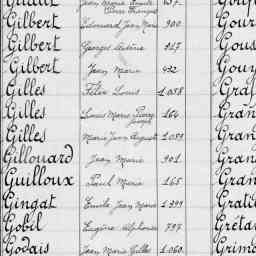 Jean Marie Emile 637
Pierre François
Gilbert Edouard Jean Marie 900 Gour
Gilbert Georges Antoine 917 Gous
Gilbert Jean Marie 492 Gouy
Gilles Félix Louis 1058
Gilles Louis Marie Pierre 164 Gran
Joseph
Gilles Marie Jean August 1059 Gran
Gillouard Jean Marie 901 Gran
Guilloux Paul Marie 165 Gran
Gingat Emile Jean Marie 1399 Grat
Gobil Eugène Alphonse 797 Gréta
Godais Jean Marie Gilles 1060 Grim